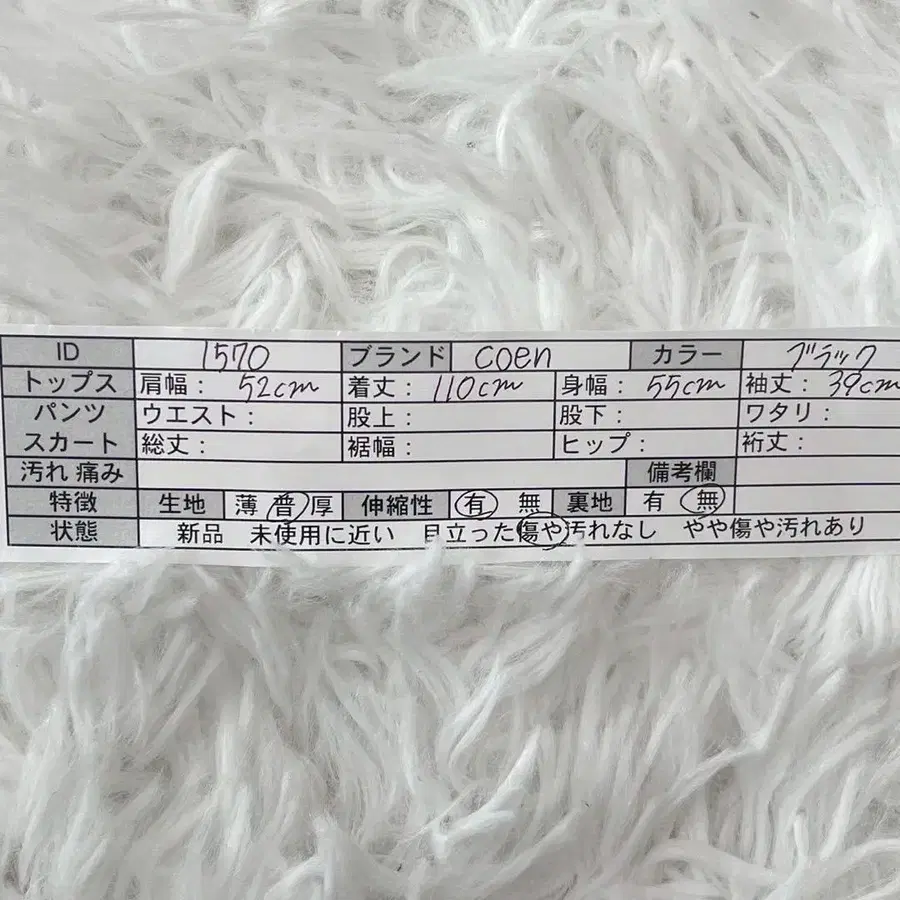 ID 1570 ブランド coen カラー ブラック
トップス 肩幅： 52cm 着丈： 110cm 身幅： 55cm 袖丈： 39cm
パンツ ウエスト： 股上： 股下： ワタリ：
スカート 総丈： 裾幅： ヒップ： 裄丈：
汚れ 痛み 備考欄
特徴 生地 薄 普 厚 伸縮性 有 無 裏地 有 無
状態 新品 未使用に近い 目立った傷や汚れなし やや傷や汚れあり